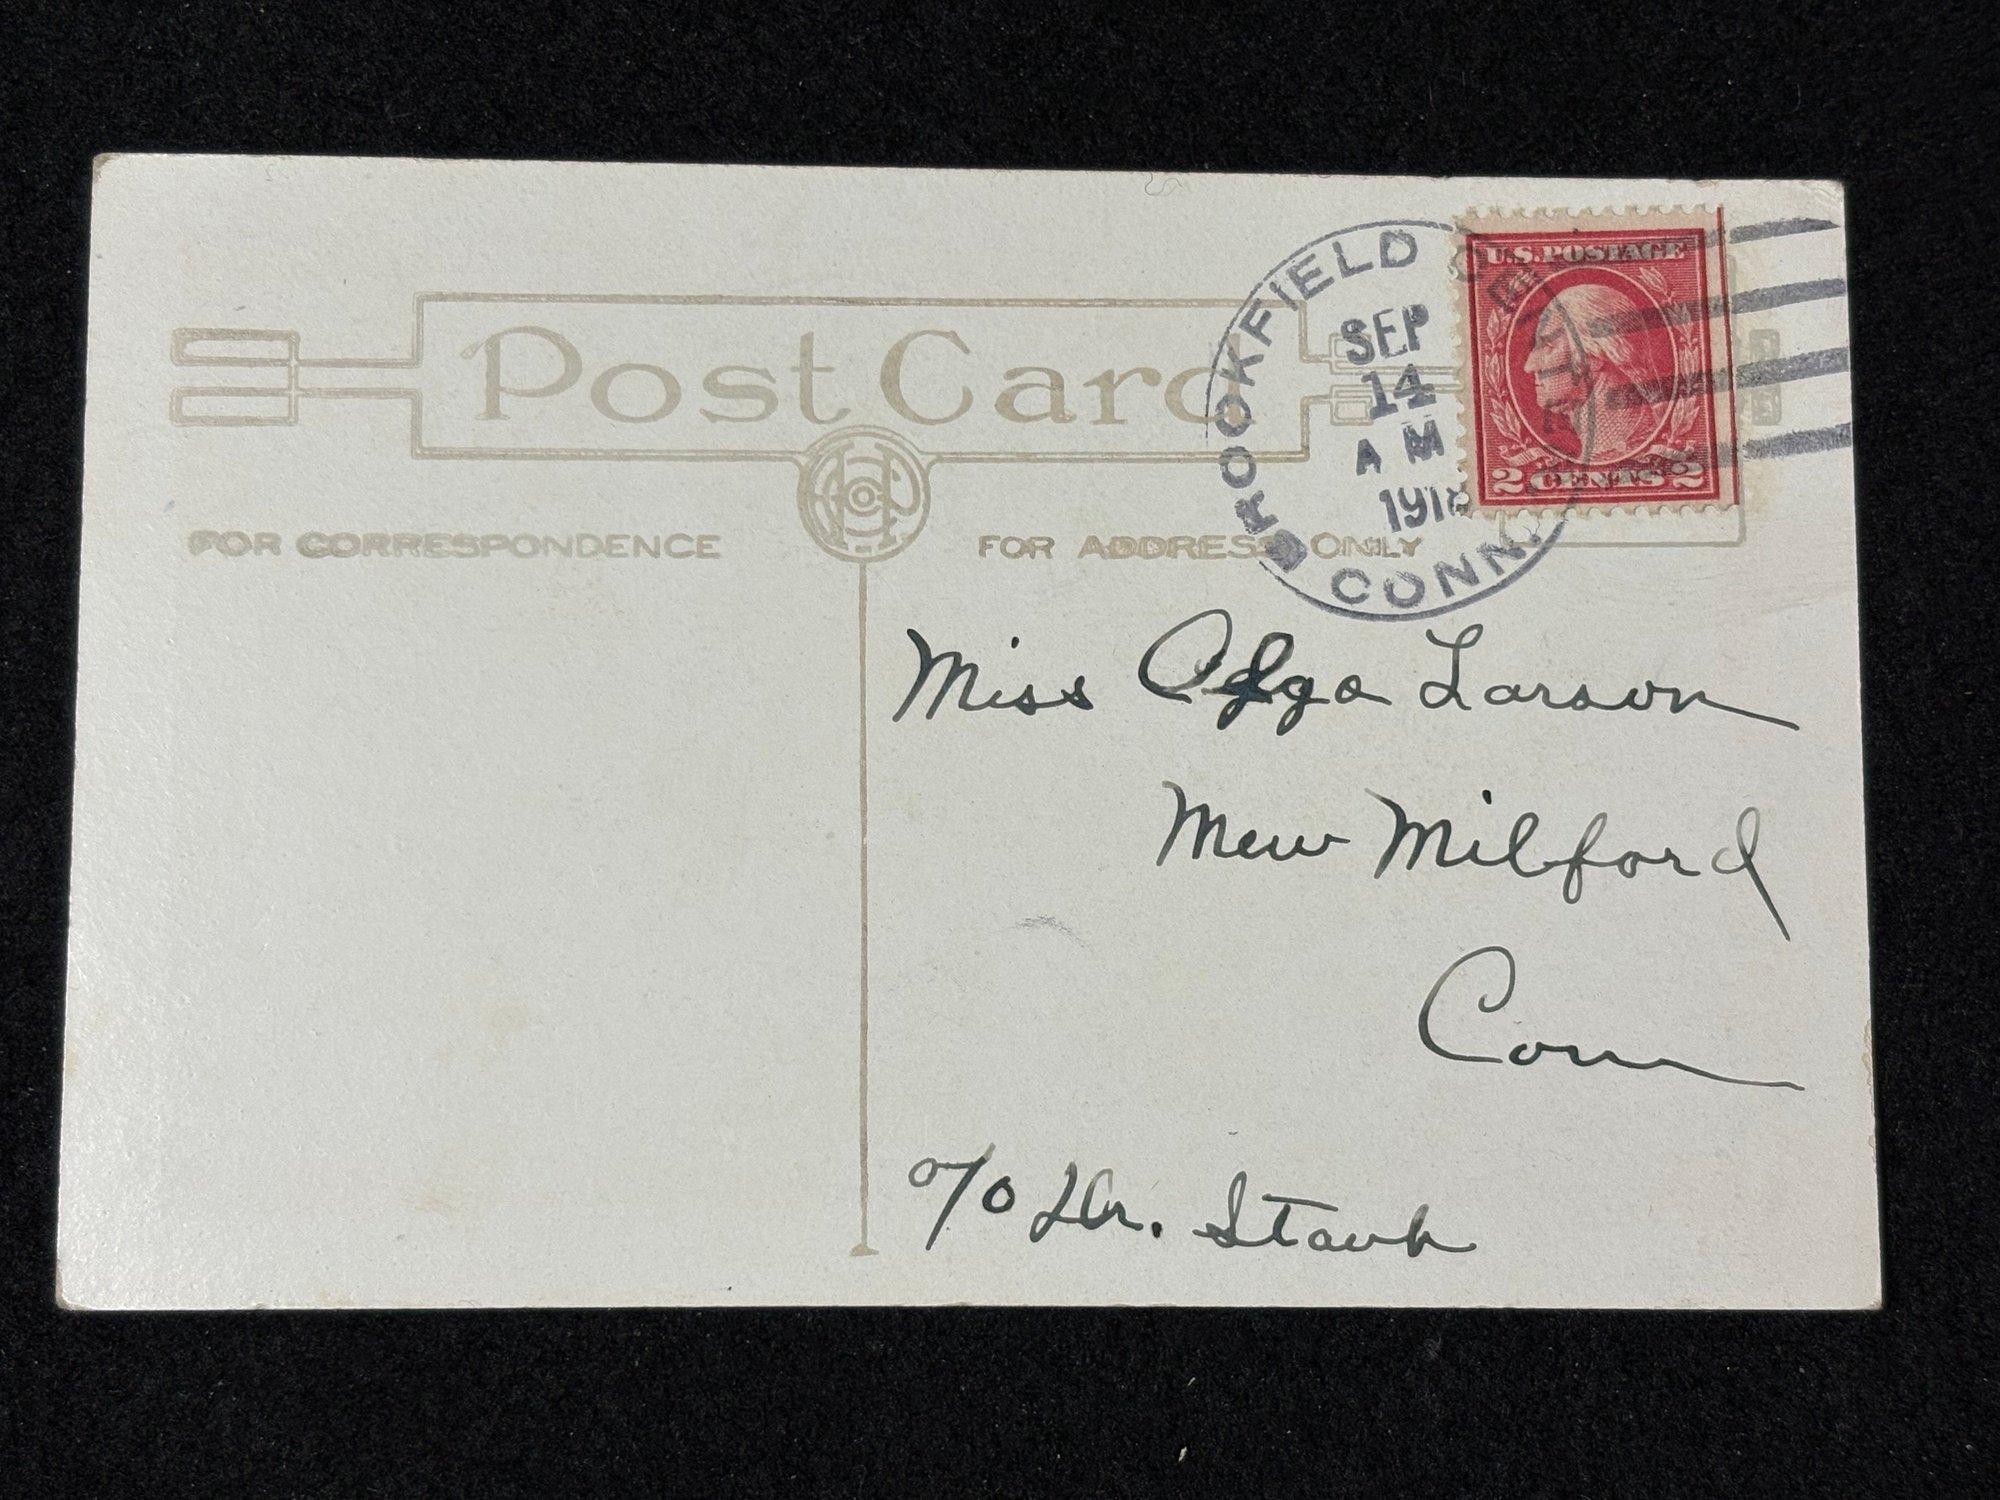 Post Card
BROOKFIELD CENTER
SEP
14
A M
1918
CONN.
U.S. POSTAGE
2 CENTS 2
FOR CORRESPONDENCE
FOR ADDRESS ONLY
Miss Olga Larson
New Milford
Conn
c/o Dr. Staub